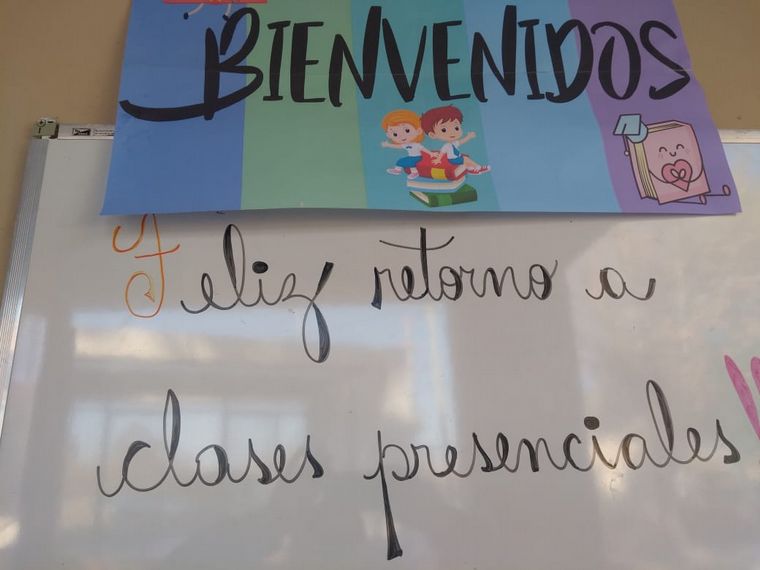 BIENVENIDOS
Feliz retorno a
clases presenciales!!